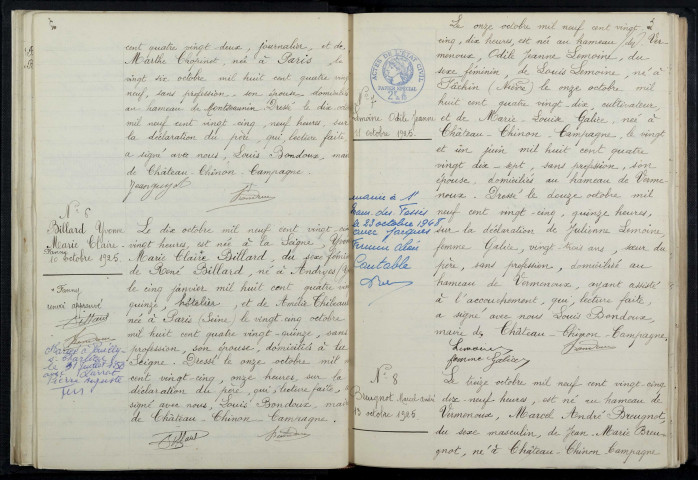 cent quatre vingt deux, journalier, et de
Marthe Chopinet, née à Paris, le
vingt six octobre mil huit cent quatre vingt
neuf, sans profession, son épouse, domiciliés
au hameau de Dressé le dix
mil neuf cent vingt-cinq, neuf heures, sur
la déclaration du père, qui, lecture faite,
a signé avec nous, Louis Bondoux, maire
de Château-Chinon Campagne.
N° 6
Billard Yvonne
Marie Claire
Fanny
10 octobre 1925.
Le dix octobre mil neuf cent vingt cinq
vingt heures, est née à la Seigne, Yvonne
Marie Claire Billard, du sexe féminin
de René Billard, né à Andryes
le cinq janvier mil huit cent quatre vingt
quinze, hôtelier, et de Amélie
née à Paris (Seine) le vingt cinq octobre
mil huit cent quatre vingt-quinze, sans
profession, son épouse, domiciliés à la
Seigne. Dressé le onze octobre mil neuf
cent vingt-cinq, onze heures, sur la
déclaration du père, qui, lecture faite, a
signé avec nous, Louis Bondoux, maire
de Château-Chinon Campagne.
Fanny
renvoi approuvé
Billard
le 31
avec
Pierre Auguste
Billard
Le onze octobre mil neuf cent vingt
cinq, dix heures, est née au hameau de Ver
menoux, Odile Jeanne Lemoine, du
sexe féminin, de Louis Lemoine, né à
Tâchin (Nièvre) le onze octobre mil
huit cent quatre vingt-dix, cultivateur
et de Marie-Louise Galice, née à
Château-Chinon-Campagne, le vingt
et un juin mil huit cent quatre
vingt dix-sept, sans profession, son
épouse, domiciliés au hameau de Verme
noux. Dressé le douze octobre mil
neuf cent vingt-cinq, quinze heures,
sur la déclaration de Julienne Lemoine,
femme Galice, vingt ans, sœur du
père, sans profession, domiciliée au
hameau de Vermenoux, ayant assisté
à l'accouchement, qui, lecture faite,
a signé avec nous Louis Bondoux,
maire de Château-Chinon-Campagne.
Lemoine
femme Galice
ACTES DE L'ÉTAT CIVIL
N° 7
Lemoine Odile Jeanne
11 octobre 1925.
mariée à St
des Fossés
le 23 octobre 1948
avec Jacques
Cantable
N° 8
Breugnot Marcel André
13 octobre 1925
Le treize octobre mil neuf cent vingt-cinq
dix neuf heures, est né au hameau de
Vermenoux, Marcel André Breugnot,
du sexe masculin, de Jean-Marie Breu-
gnot, né à Château-Chinon Campagne